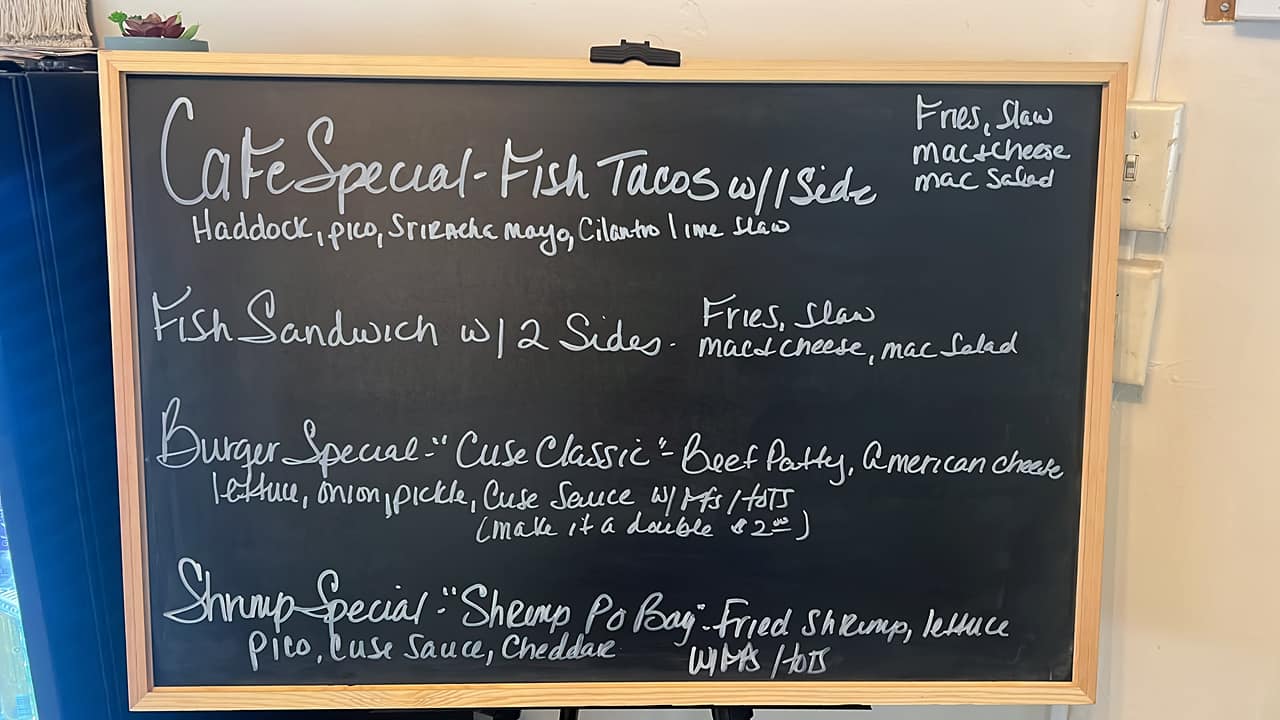 Cafe Special - Fish Tacos w/ 1 Side
Fries, Slaw
mac + cheese
mac salad
Haddock, pico, Sriracha mayo, Cilantro lime slaw
Fish Sandwich w/ 2 Sides -
Fries, Slaw
mac + cheese, mac salad
Burger Special - "Cuse Classic" - Beef Patty, american cheese
lettuce, onion, pickle, Cuse Sauce w/ FFs / tots
(make it a double $2.00)
Shrimp Special - "Shrimp Po Bay" - Fried Shrimp, lettuce
pico, Cuse Sauce, Cheddar
w/ FFs / tots